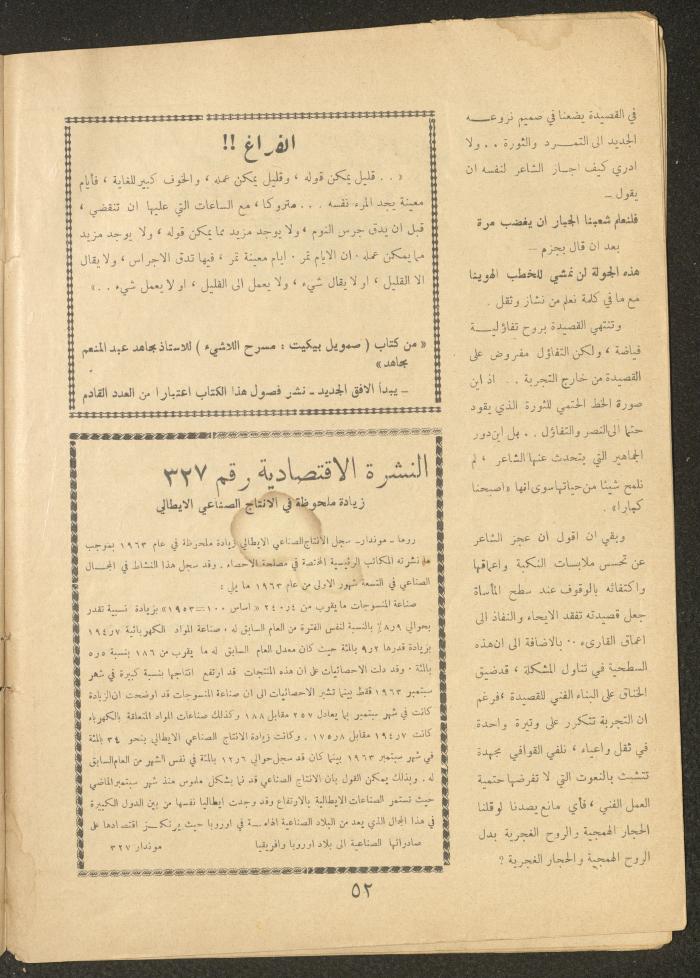 في القصيدة يضعنا في صميم نزوعه
الجديد الى التمرد والثورة .. ولا
ادري كيف اجاز الشاعر لنفسه ان
يقول -
فلنعلم شعبنا الجبار ان يغضب مرة
بعد ان قال بجزم -
هذه الجولة لن نمشي للخطب الهوينا
مع ما في كلمة نعلم من نشاز وثقل .
وتنتهي القصيدة بروح تفاؤلية
فياضة ، ولكن التفاؤل مفروض على
القصيدة من خارج التجربة .. اذ اين
صورة الخط الحتمي للثورة الذي يقود
حتما الى النصر والتفاؤل .. بل اين دور
الجماهير التي يتحدث عنها الشاعر ، لم
نلمح شيئا من حياتها سوى انها «اصبحنا
كبارا» .
وبقي ان اقول ان عجز الشاعر
عن تحسس ملابسات النكبة واعماقها
واكتفائه بالوقوف عند سطح المأساة
جعل قصيدته تفقد الايحاء والنفاذ الى
اعماق القارىء .. بالاضافة الى ان هذه
السطحية في تناول المشكلة ، قد ضيق
الخناق على البناء الفني للقصيدة ، فرغم
ان التجربة تتكرر على وتيرة واحدة
في ثقل واعياء ، نلفي القوافي مجهدة
تتشبث بالنعوت التي لا تفرضها حتمية
العمل الفني ، فأي مانع يصدنا لو قلنا
الحجار الهمجية والروح الغجرية بدل
الروح الهمجية والحجار الغجرية ؟
الفراغ !!
« .. قليل يمكن قوله ، وقليل يمكن عمله ، والخوف كبير للغاية ، فأيام
معينة يجد المرء نفسه ... متروكا ، مع الساعات التي عليها ان تنقضي ،
قبل ان يدق جرس النوم ، ولا يوجد مزيد مما يمكن قوله ، ولا يوجد مزيد
مما يمكن عمله . ان الايام تمر . ايام معينة تمر ، فيها تدق الاجراس ، ولا يقال
الا القليل ، او لا يقال شيء ، ولا يعمل الى القليل ، او لا يعمل شيء .. »
« من كتاب ( صمويل بيكيت : مسرح اللاشيء ) للاستاذ مجاهد عبد المنعم
مجاهد »
- يبدأ الافق الجديد - نشر فصول هذا الكتاب اعتبارا من العدد القادم
النشرة الاقتصادية رقم ٣٢٧
زيادة ملحوظة في الانتاج الصناعي الايطالي
روما - موندار - سجل الانتاج الصناعي الايطالي زيادة ملحوظة في عام ١٩٦٣ بموجب
ما نشرته المكاتب الرئيسية المختصة في مصلحة الاحصاء . وقد سجل هذا النشاط في المجال
الصناعي في التسعة شهور الاولى من عام ١٩٦٣ ما يلي :
صناعة المنسوجات ما يقرب من ٢٤٠٫٤ « اساس ١٠٠=١٩٥٣» بزيادة نسبية تقدر
بحوالي ٨٫٩٪ بالنسبة لنفس الفترة من العام السابق له . صناعة المواد الكهربائية ١٩٤٫٧
بزيادة قدرها ٩٫٢ بالمئة حيث كان معدل العام السابق له ما يقرب من ١٨٦ بنسبة ٥٫٥
بالمئة . وقد دلت الاحصائيات على ان هذه المنتجات قد ارتفع انتاجها بنسبة كبيرة في شهر
سبتمبر ١٩٦٣ فقط بينما تشير الاحصائيات الى ان صناعة المنسوجات قد اوضحت ان الزيادة
كانت في شهر سبتمبر بما يعادل ٢٥٧ مقابل ١٨٨ وكذلك صناعات المواد المتعلقة بالكهرباء
كانت ١٩٤٫٧ مقابل ١٧٥٫٨ . وكانت زيادة الانتاج الصناعي الايطالي بنحو ٣٤ بالمئة
في شهر سبتمبر ١٩٦٣ بينما كان قد سجل حوالي ١٢٫٦ بالمئة في نفس الشهر من العام السابق
له . وبذلك يمكن القول بان الانتاج الصناعي قد نما بشكل ملموس منذ شهر سبتمبر الماضي
حيث تستمر الصناعات الايطالية بالارتفاع وقد وجدت ايطاليا نفسها من بين الدول الكبيرة
في هذا المجال الذي يعد من البلاد الصناعية الهامة في اوروبا حيث يرتكز اقتصادها على
صادراتها الصناعية الى بلاد اوروبا وافريقيا
موندار ٣٢٧
٥٢